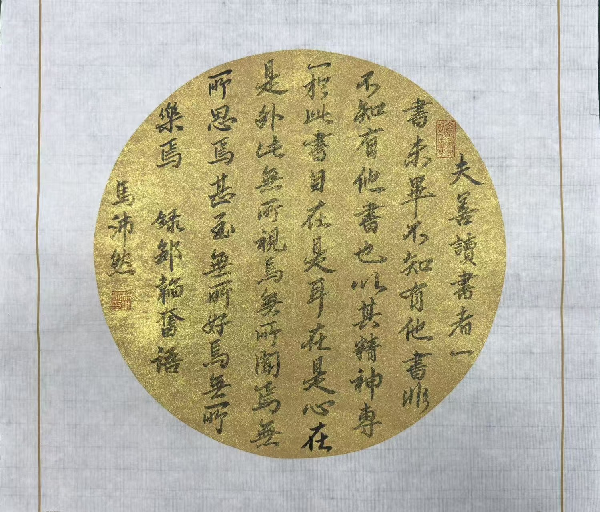 夫善讀書者一
書未畢不知有他書非
不知有他書也以其精神專
一於此書目在是耳在是心在
是外此無所視焉無所聞焉無
所思焉甚至無所好焉無所
樂焉 錄鄒韜奮語
馬沛然